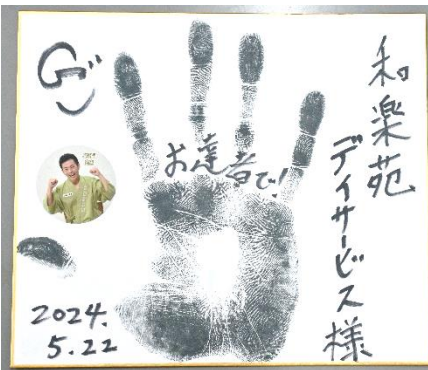 和楽苑
デイサービス様
お達者で!
2024.
5.22